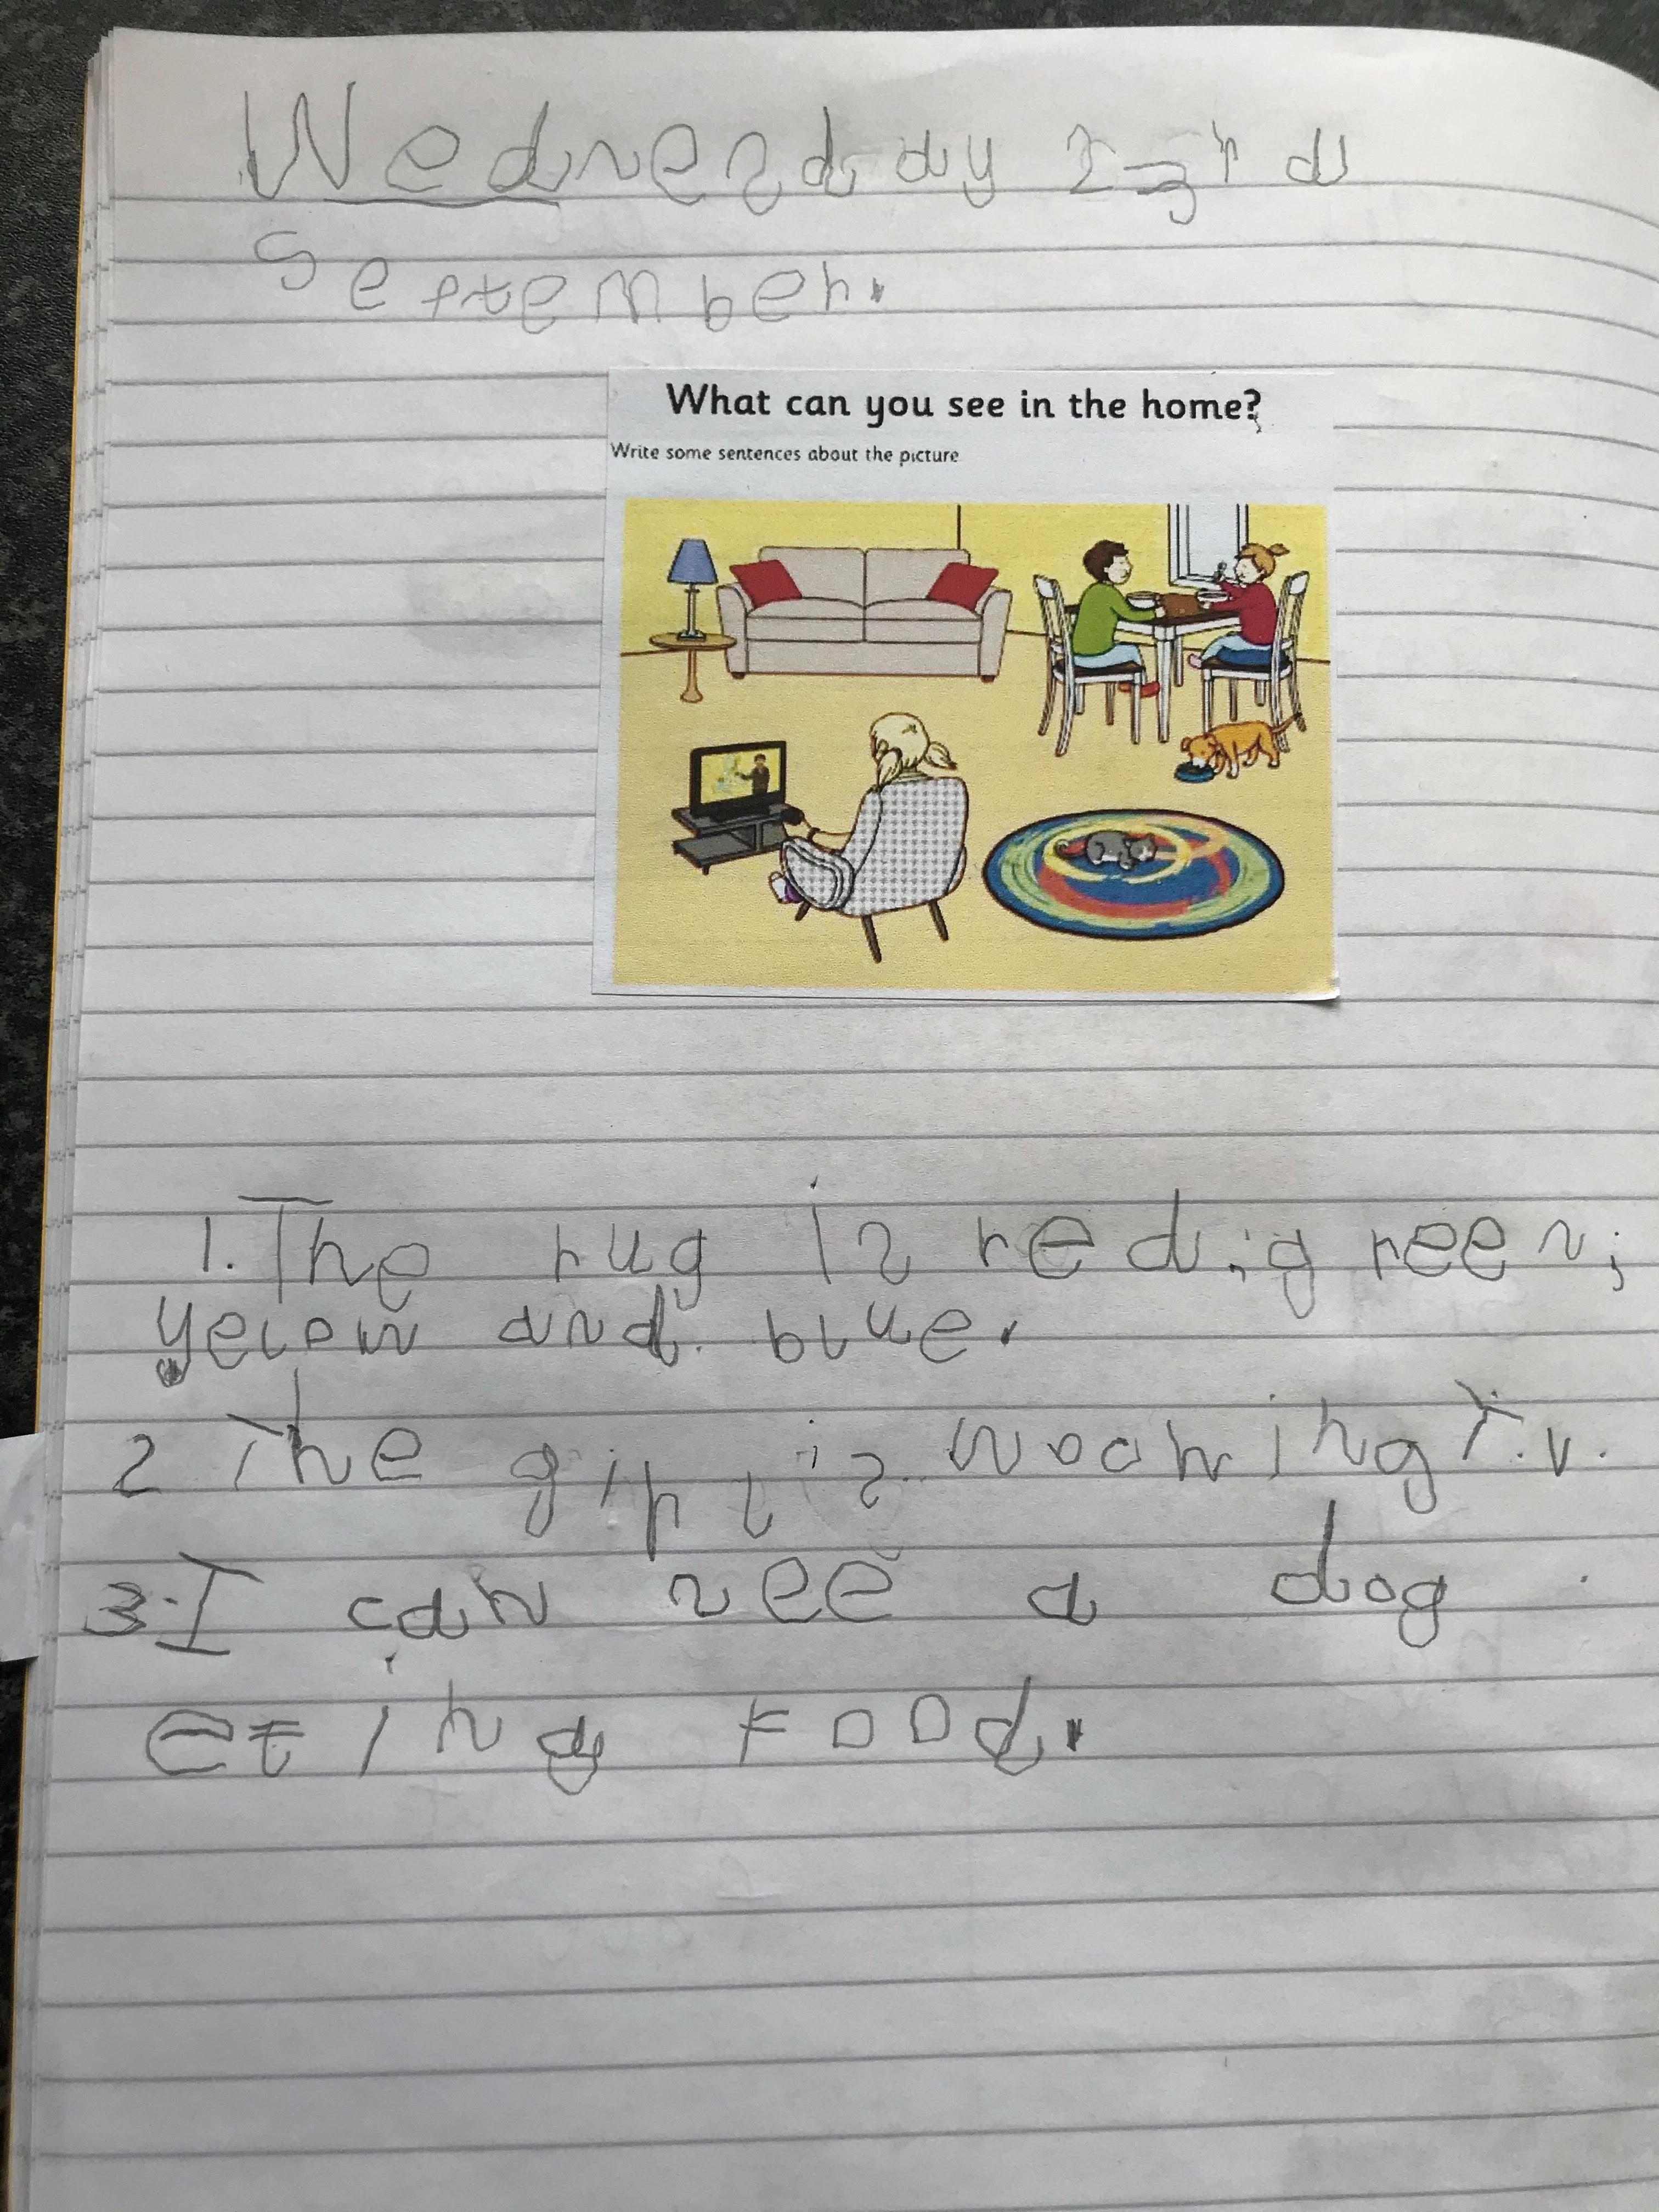 Wednesday 23rd
September.
What can you see in the home?
Write some sentences about the picture
1. The rug is red, green,
yelow and blue.
2 The girl is woohing T.v.
3. I can see a dog
eting food.